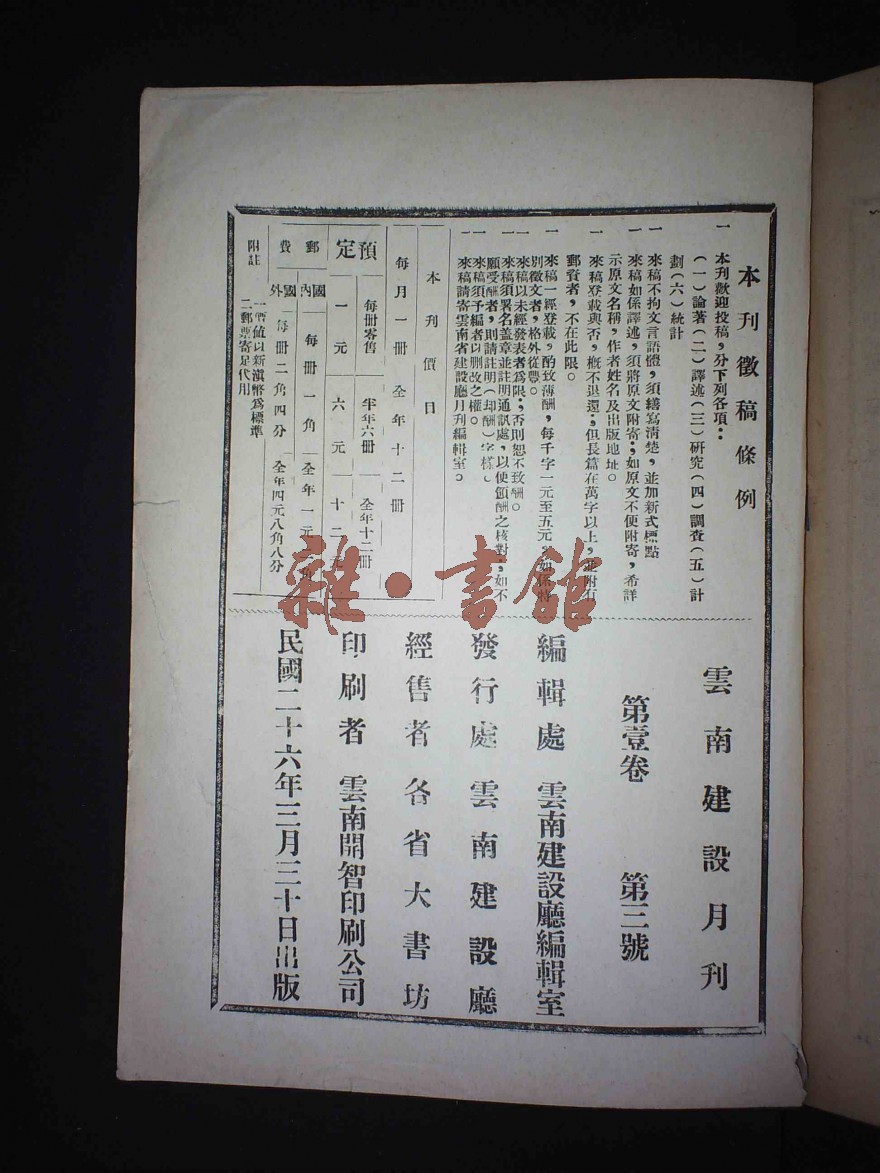 本刊徵稿條例
一 本刊歡迎投稿，分下列各項：
（一）論著（二）譯述（三）研究（四）調查（五）計
劃（六）統計
一 來稿不拘文言語體，須繕寫清楚，並加新式標點
一 來稿如係譯述，須將原文附寄；如原文不便附寄，希詳
示原文名稱，作者姓名及出版地址。
一 來稿登載與否，概不退還；但長篇在萬字以上，並附有
郵資者，不在此限。
一 來稿一經登載，酌致薄酬，每千字一元至五元，如係特
別徵文者，格外從豐。
一 來稿以未經發表者爲限；否則恕不致酬。
一 來稿須署名蓋章並註明通訊處，以便領酬之核對，如不
願受酬者，則請註明（却酬）字樣。
一 來稿須予編者以刪改之權。
一 來稿請寄雲南省建設廳月刊編輯室。
本刊價目
每月一冊 全年十二冊
預定 每冊零售 半年六冊 全年十二冊
一元 六元 十二元
郵費 國內 每冊一角 全年一元
國外 每冊二角四分 全年四元八角八分
附註 一 幣值以新滇幣爲標準
二 郵票寄足代用
雲南建設月刊
第壹卷 第三號
編輯處 雲南建設廳編輯室
發行處 雲南建設廳
經售者 各省大書坊
印刷者 雲南開智印刷公司
民國二十六年三月三十日出版
雜·書館